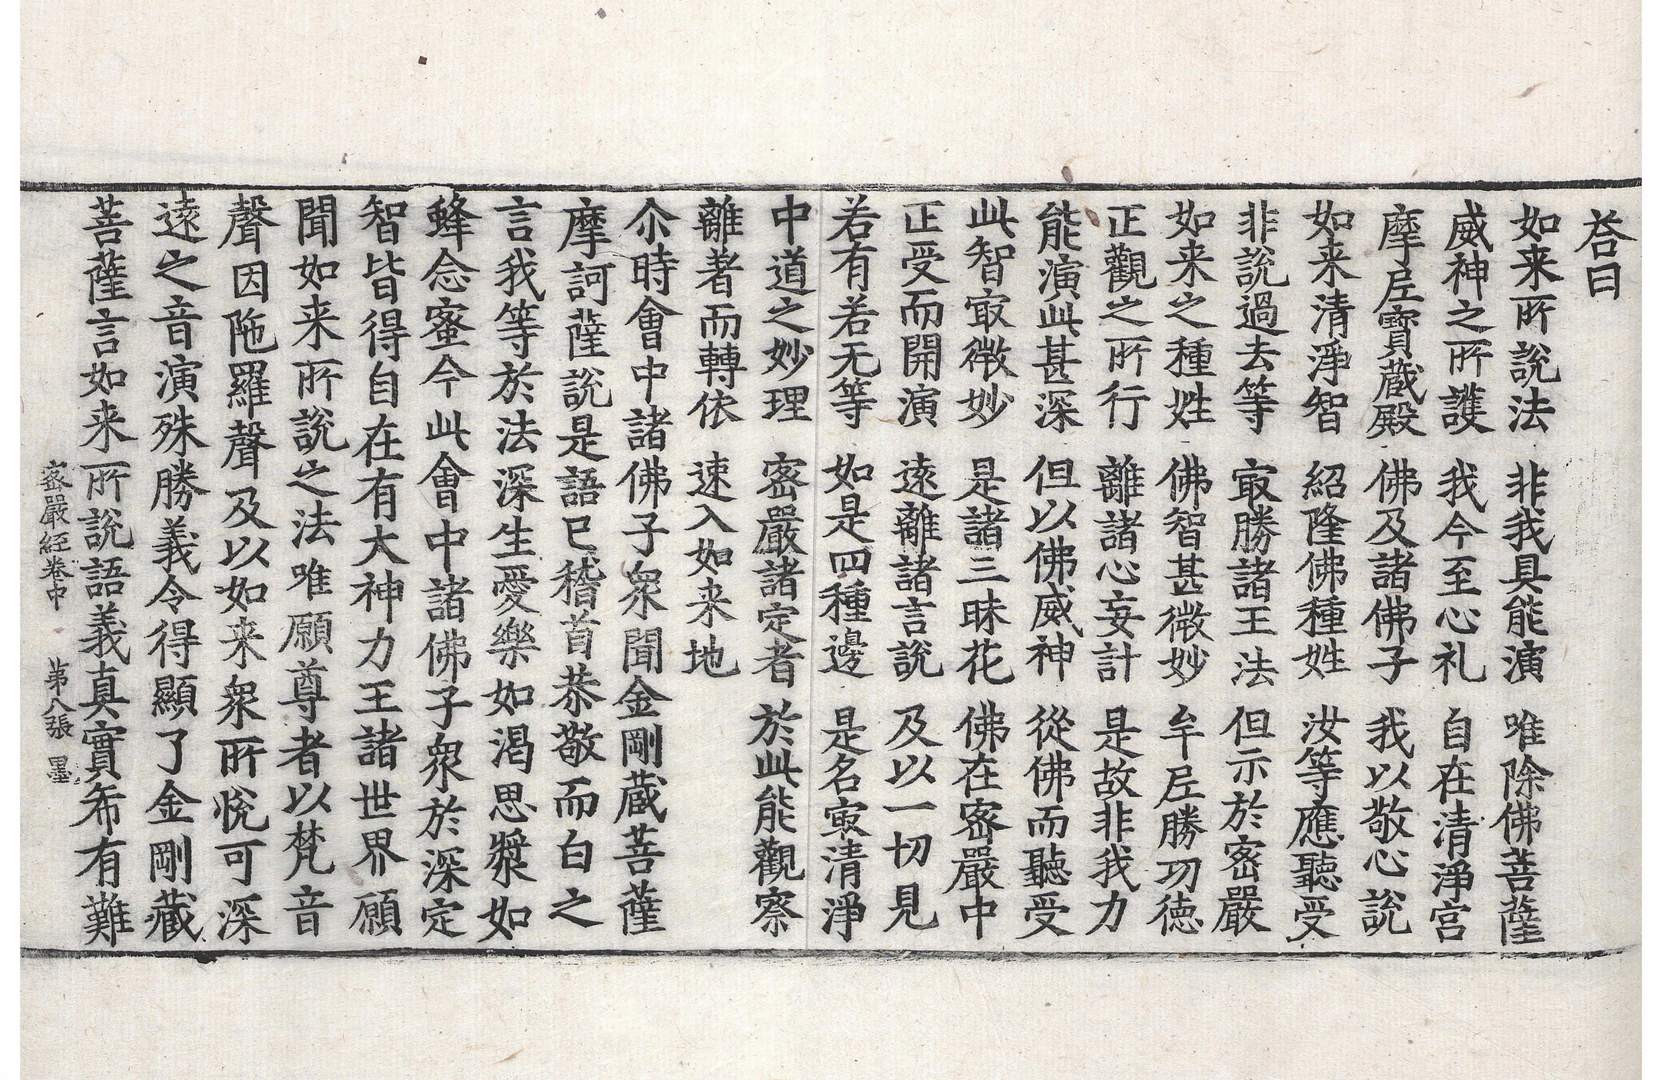 荅曰
如来所說法 非我具能演 唯除佛菩薩
威神之所護 我今至心礼 自在清淨宮
摩尼寶蔵殿 佛及諸佛子 我以敬心說
如来清淨智 紹隆佛種姓 汝等應聽受
非說過去等 㝡勝諸王法 但示於宻嚴
如来之種姓 佛智甚微妙 牟尼勝功徳
正觀之所行 離諸心妄計 是故非我力
能演此甚深 但以佛威神 從佛而聽受
此智㝡微妙 是諸三昧花 佛在宻嚴中
正受而開演 遠離諸言說 及以一切見
若有若无等 如是四種邊 是名㝡清淨
中道之妙理 宻嚴諸定者 於此能觀察
離著而轉依 速入如来地
尒時會中諸佛子衆聞金剛蔵菩薩
摩訶薩說是語已稽首恭敬而白之
言我等於法深生愛樂如渴思漿如
蜂念蜜今此會中諸佛子衆於深定
智皆得自在有大神力王諸世界願
聞如来所說之法唯願尊者以梵音
聲因陁羅聲及以如来衆所悅可深
遠之音演殊勝義令得顯了金剛藏
菩薩言如来所說語義真實希有難
宻嚴経卷中 第八張 墨